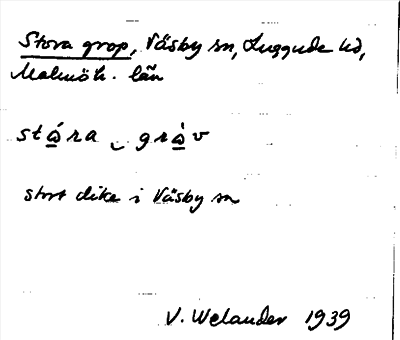 Stora grop, Väsby sn, Luggude hd,
Malmöh. län
stώ̲ra ‿ grὼ̲v
stort dike i Väsby sn
V. Welander 1939